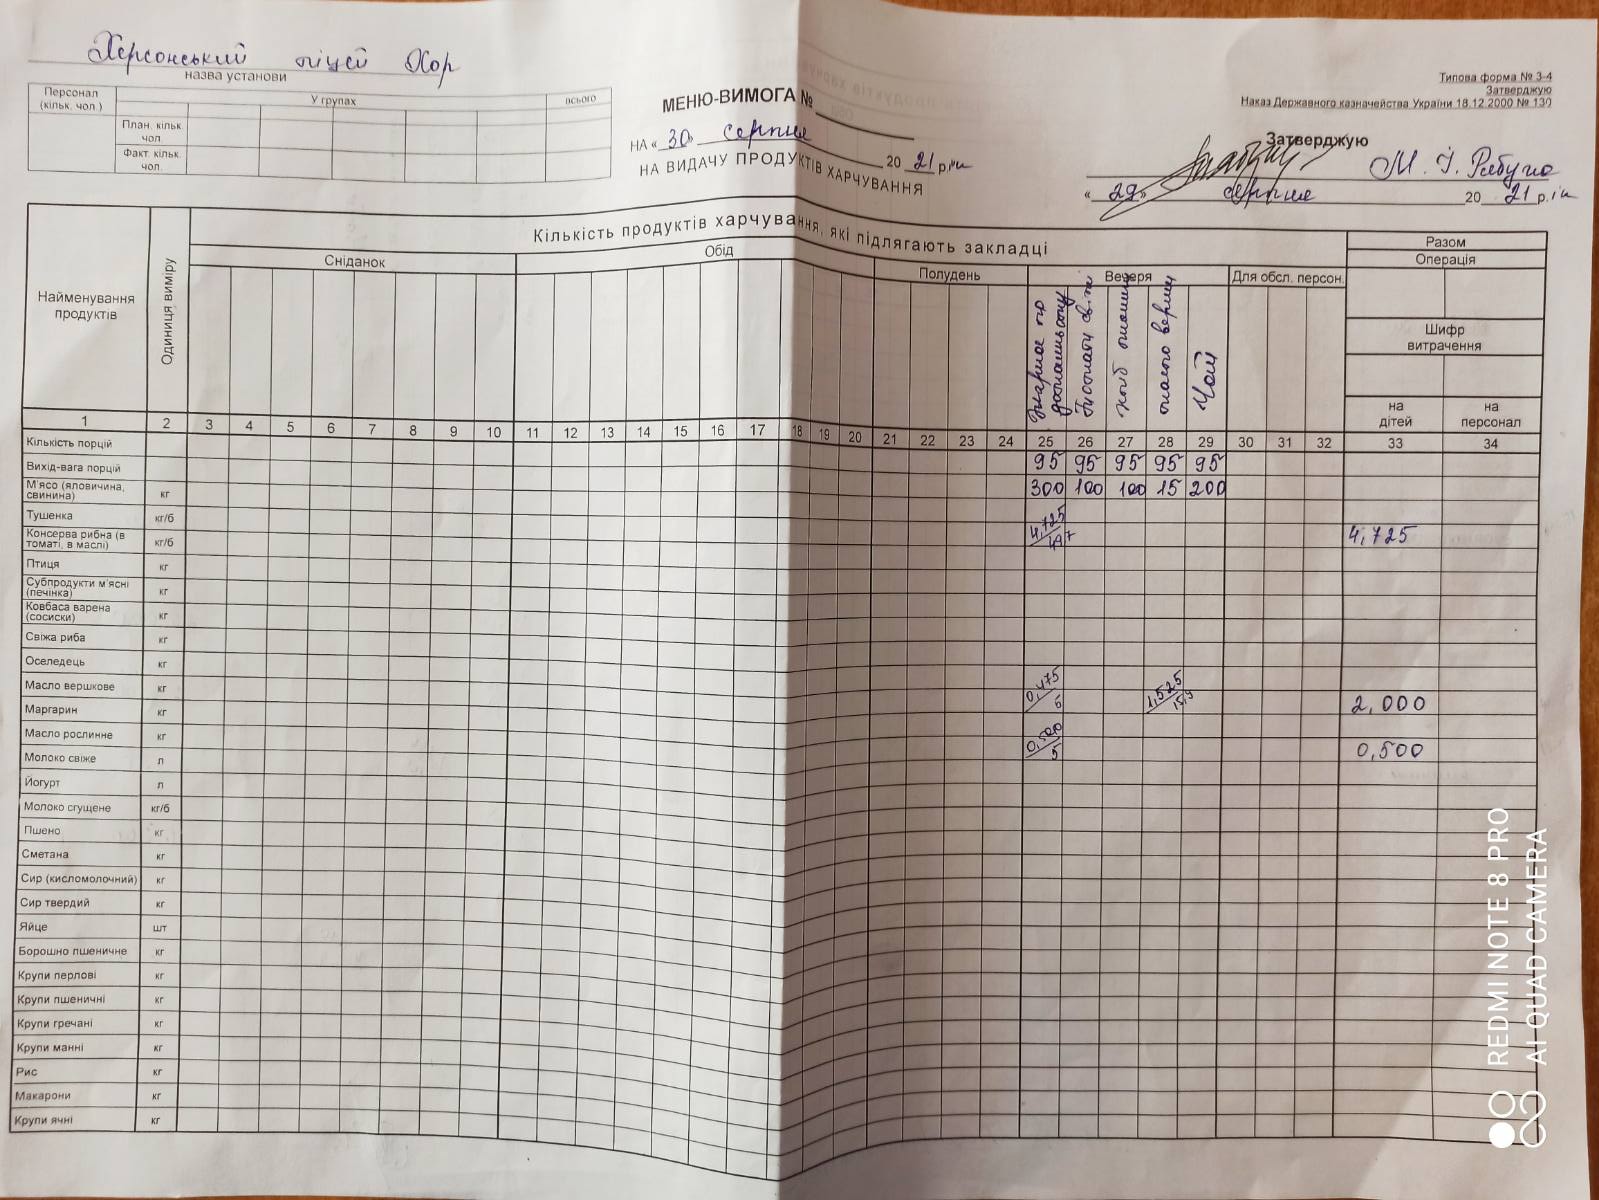 Херсонський ліцей Хор
назва установи
Типова форма № З-4
Затверджую
Наказ Державного казначейства України 18.12.2000 № 130
Персонал (кільк. чол.)
У групах
всього
План. кільк. чол.
Факт. кільк. чол.
МЕНЮ-ВИМОГА №
НА « 30 » серпня 20 21 р.ік
НА ВИДАЧУ ПРОДУКТІВ ХАРЧУВАННЯ
Затверджую
« 29 » серпня 20 21 р.ік
Найменування продуктів
Одиниця виміру
Кількість продуктів харчування, які підлягають закладці
Разом
Сніданок
Обід
Полудень
Вечеря
Для обсл. персон.
Операція
Шифр витрачення
на дітей
на персонал
Чай
1 2 3 4 5 6 7 8 9 10 11 12 13 14 15 16 17 18 19 20 21 22 23 24 25 26 27 28 29 30 31 32 33 34
Кількість порцій 95 95 95 95 95
Вихід-вага порцій 300 100 100 15 200
М'ясо (яловичина, свинина) кг
Тушенка кг/б 4,725 4,725
Консерва рибна (в томаті, в маслі) кг/б
Птиця кг
Субпродукти м'ясні (печінка) кг
Ковбаса варена (сосиски) кг
Свіжа риба кг
Оселедець кг
Масло вершкове кг 0,475 1,525 2,000
Маргарин кг
Масло рослинне кг 0,500 5 0,500
Молоко свіже л
Йогурт л
Молоко сгущене кг/б
Пшено кг
Сметана кг
Сир (кисломолочний) кг
Сир твердий кг
Яйце шт
Борошно пшеничне кг
Крупи перлові кг
Крупи пшеничні кг
Крупи гречані кг
Крупи манні кг
Рис кг
Макарони кг
Крупи ячні кг
REDMI NOTE 8 PRO
AI QUAD CAMERA